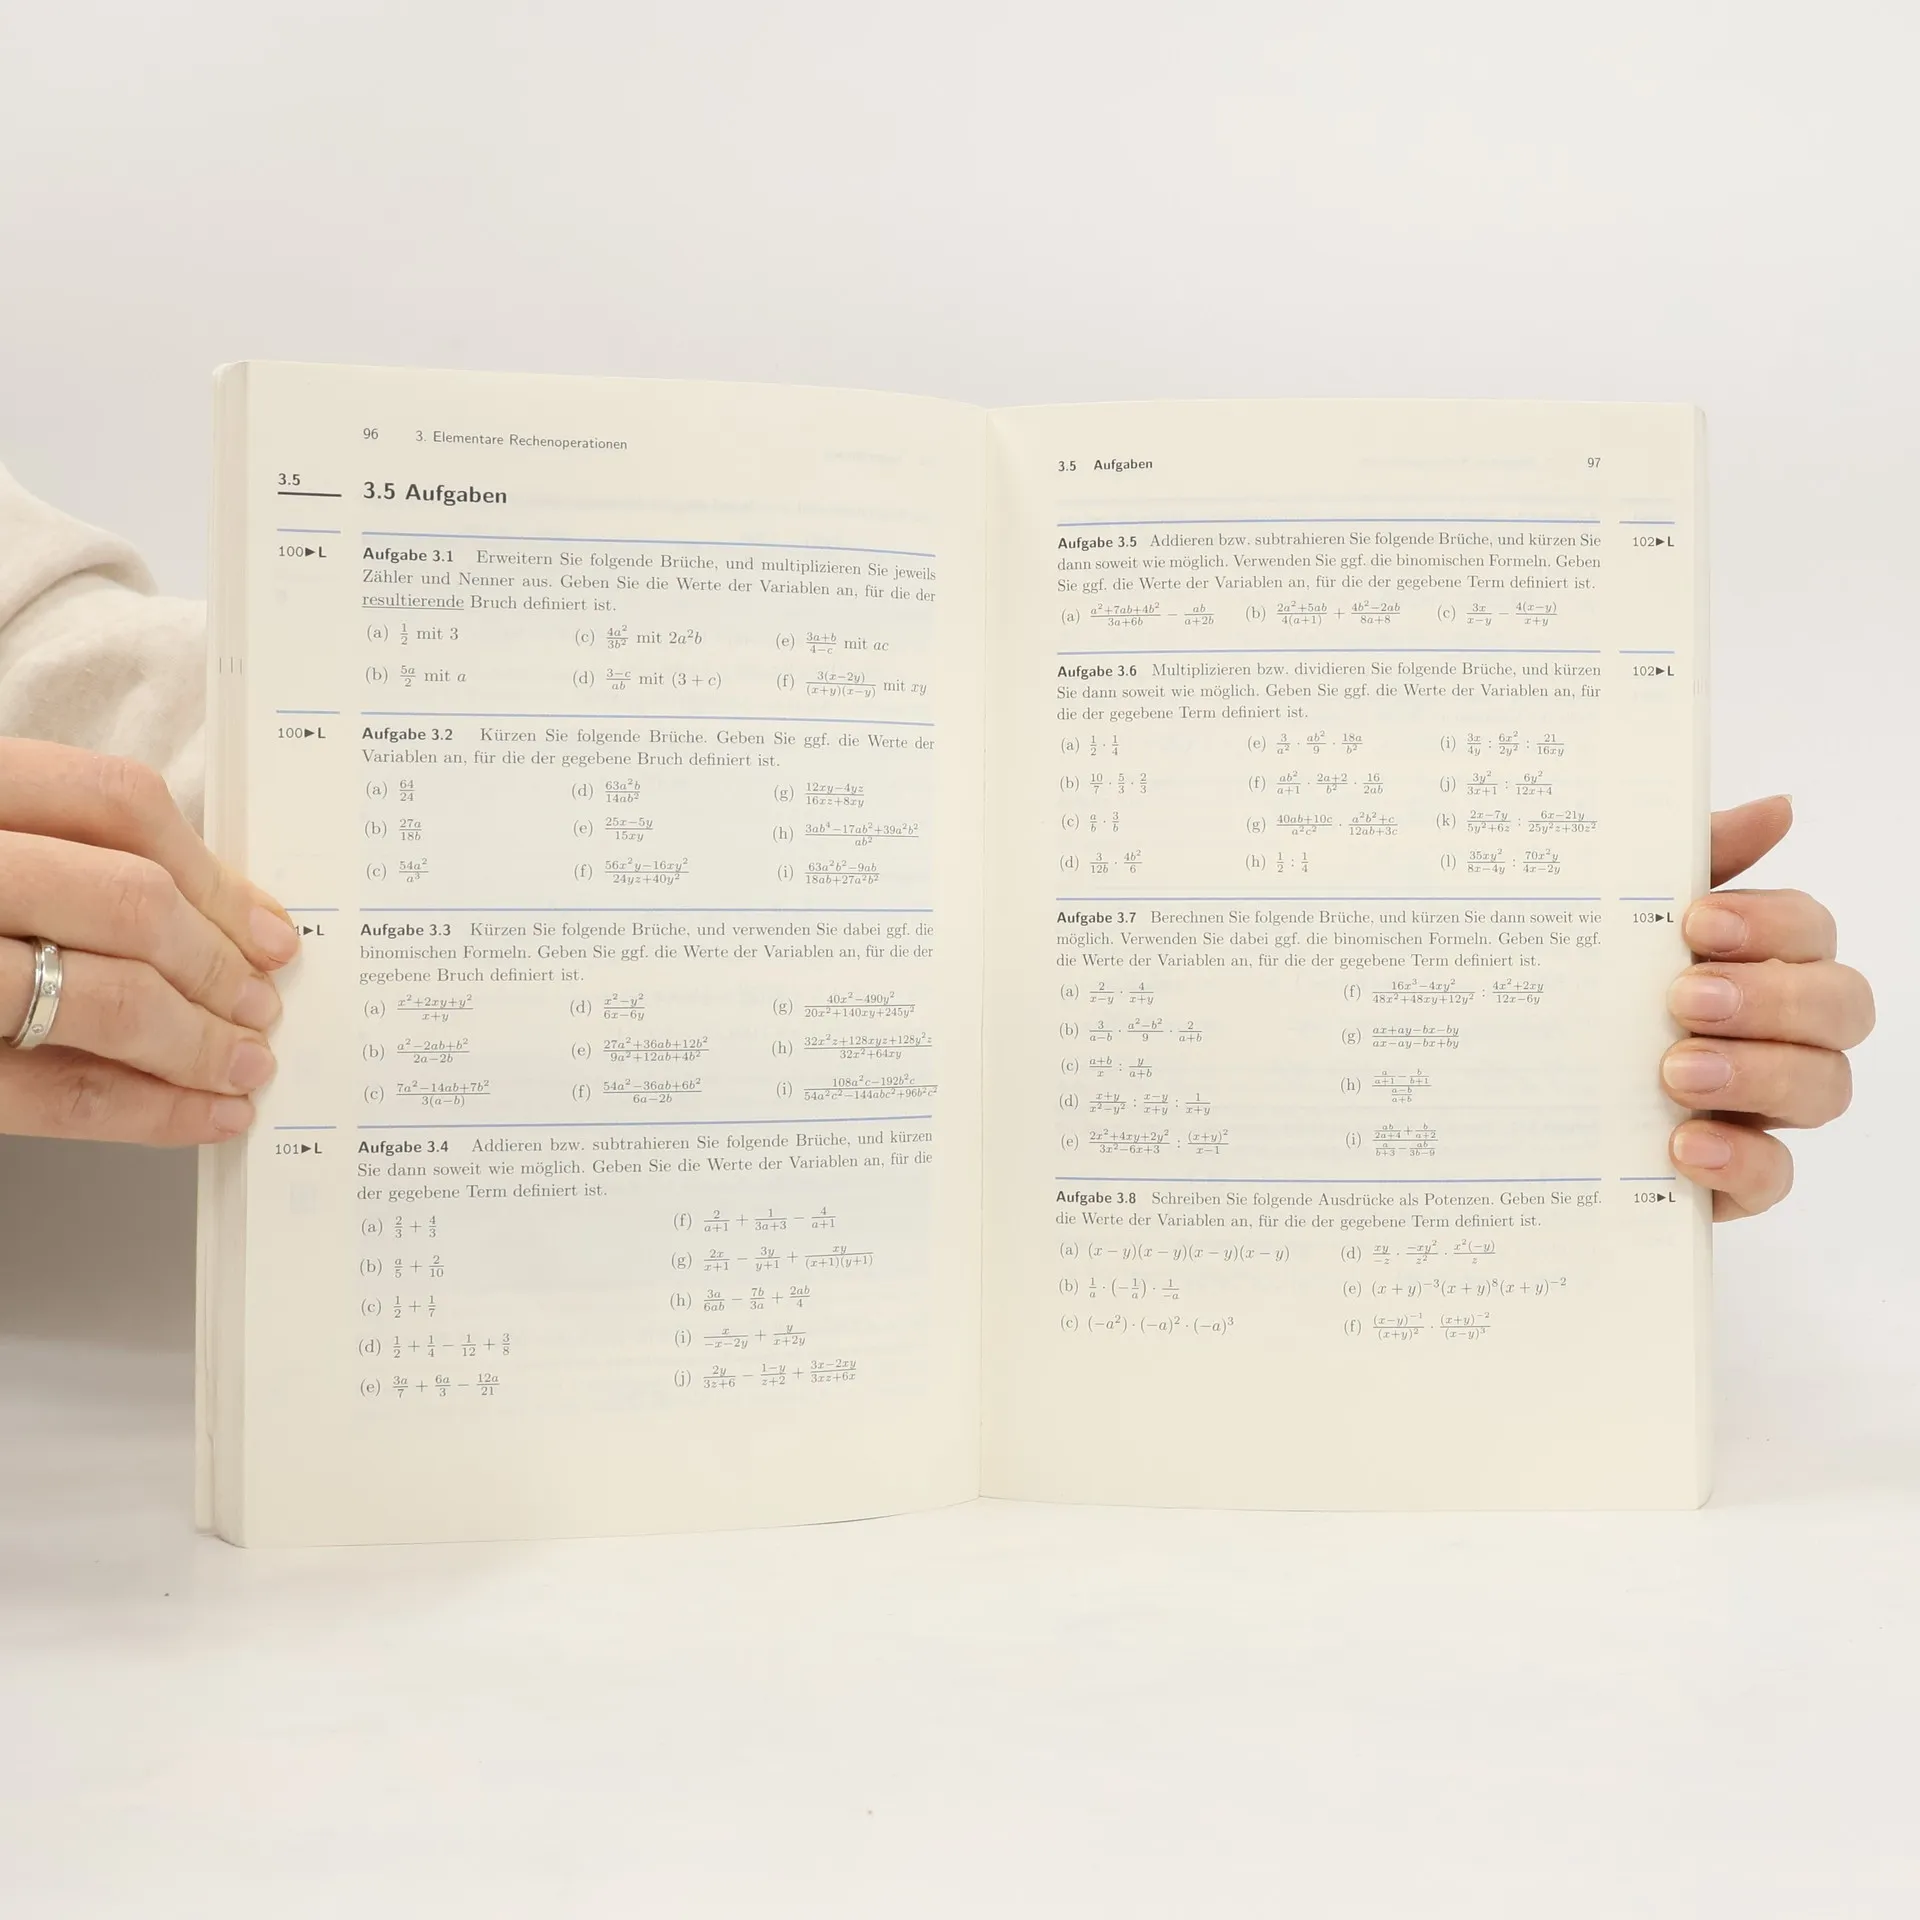 96 3. Elementare Rechenoperationen
3.5
3.5 Aufgaben
100▶L
Aufgabe 3.1 Erweitern Sie folgende Brüche, und multiplizieren Sie jeweils
Zähler und Nenner aus. Geben Sie die Werte der Variablen an, für die der
resultierende Bruch definiert ist.
(a) 1/2 mit 3 (c) 4a²/3b² mit 2a²b (e) (3a+b)/(4−c) mit ac
(b) 5a/2 mit a (d) (3−c)/ab mit (3 + c) (f) 3(x−2y)/((x+y)(x−y)) mit xy
100▶L
Aufgabe 3.2 Kürzen Sie folgende Brüche. Geben Sie ggf. die Werte der
Variablen an, für die der gegebene Bruch definiert ist.
(a) 64/24 (d) 63a²b/14ab² (g) (12xy−4yz)/(16xz+8xy)
(b) 27a/18b (e) (25x−5y)/15xy (h) (3ab⁴−17ab²+39a²b²)/ab²
(c) 54a²/a³ (f) (56x²y−16xy²)/(24yz+40y²) (i) (63a²b²−9ab)/(18ab+27a²b²)
1▶L
Aufgabe 3.3 Kürzen Sie folgende Brüche, und verwenden Sie dabei ggf. die
binomischen Formeln. Geben Sie ggf. die Werte der Variablen an, für die der
gegebene Bruch definiert ist.
(a) (x²+2xy+y²)/(x+y) (d) (x²−y²)/(6x−6y) (g) (40x²−490y²)/(20x²+140xy+245y²)
(b) (a²−2ab+b²)/(2a−2b) (e) (27a²+36ab+12b²)/(9a²+12ab+4b²) (h) (32x²z+128xyz+128y²z)/(32x²+64xy)
(c) (7a²−14ab+7b²)/(3(a−b)) (f) (54a²−36ab+6b²)/(6a−2b) (i) (108a²c−192b²c)/(54a²c²−144abc²+96b²c²)
101▶L
Aufgabe 3.4 Addieren bzw. subtrahieren Sie folgende Brüche, und kürzen
Sie dann soweit wie möglich. Geben Sie die Werte der Variablen an, für die
der gegebene Term definiert ist.
(a) 2/3 + 4/3
(b) a/5 + 2/10
(c) 1/2 + 1/7
(d) 1/2 + 1/4 − 1/12 + 3/8
(e) 3a/7 + 6a/3 − 12a/21
(f) 2/(a+1) + 1/(3a+3) − 4/(a+1)
(g) 2x/(x+1) − 3y/(y+1) + xy/((x+1)(y+1))
(h) 3a/6ab − 7b/3a + 2ab/4
(i) x/(−x−2y) + y/(x+2y)
(j) 2y/(3z+6) − (1−y)/(z+2) + (3x−2xy)/(3xz+6x)
3.5 Aufgaben 97
Aufgabe 3.5 Addieren bzw. subtrahieren Sie folgende Brüche, und kürzen Sie
dann soweit wie möglich. Verwenden Sie ggf. die binomischen Formeln. Geben
Sie ggf. die Werte der Variablen an, für die der gegebene Term definiert ist.
102▶L
(a) (a²+7ab+4b²)/(3a+6b) − ab/(a+2b) (b) (2a²+5ab)/(4(a+1)) + (4b²−2ab)/(8a+8) (c) 3x/(x−y) − 4(x−y)/(x+y)
Aufgabe 3.6 Multiplizieren bzw. dividieren Sie folgende Brüche, und kürzen
Sie dann soweit wie möglich. Geben Sie ggf. die Werte der Variablen an, für
die der gegebene Term definiert ist.
102▶L
(a) 1/2 · 1/4 (e) 3/a² · ab²/9 · 18a/b² (i) 3x/4y : 6x²/2y² : 21/16xy
(b) 10/7 · 5/3 · 2/3 (f) ab²/(a+1) · (2a+2)/b² · 16/2ab (j) 3y²/(3x+1) : 6y²/(12x+4)
(c) a/b · 3/b (g) (40ab+10c)/a²c² · (a²b²+c)/(12ab+3c) (k) (2x−7y)/(5y²+6z) : (6x−21y)/(25y²z+30z²)
(d) 3/12b · 4b²/6 (h) 1/2 : 1/4 (l) 35xy²/(8x−4y) : 70x²y/(4x−2y)
Aufgabe 3.7 Berechnen Sie folgende Brüche, und kürzen Sie dann soweit wie
möglich. Verwenden Sie dabei ggf. die binomischen Formeln. Geben Sie ggf.
die Werte der Variablen an, für die der gegebene Term definiert ist.
103▶L
(a) 2/(x−y) · 4/(x+y)
(b) 3/(a−b) · (a²−b²)/9 · 2/(a+b)
(c) (a+b)/x : y/(a+b)
(d) (x+y)/(x²−y²) : (x−y)/(x+y) : 1/(x+y)
(e) (2x²+4xy+2y²)/(3x²−6x+3) : (x+y)²/(x−1)
(f) (16x³−4xy²)/(48x²+48xy+12y²) : (4x²+2xy)/(12x−6y)
(g) (ax+ay−bx−by)/(ax−ay−bx+by)
(h) (a/(a+1) − b/(b+1))/((a−b)/(a+b))
(i) (ab/(2a+4) + b/(a+2))/(a/(b+3) − ab/(3b−9))
Aufgabe 3.8 Schreiben Sie folgende Ausdrücke als Potenzen. Geben Sie ggf.
die Werte der Variablen an, für die der gegebene Term definiert ist.
103▶L
(a) (x − y)(x − y)(x − y)(x − y) (d) xy/−z · −xy²/z² · x²(−y)/z
(b) 1/a · (−1/a) · 1/−a (e) (x + y)⁻³(x + y)⁸(x + y)⁻²
(c) (−a²) · (−a)² · (−a)³ (f) (x−y)⁻¹/(x+y)² · (x+y)⁻²/(x−y)³